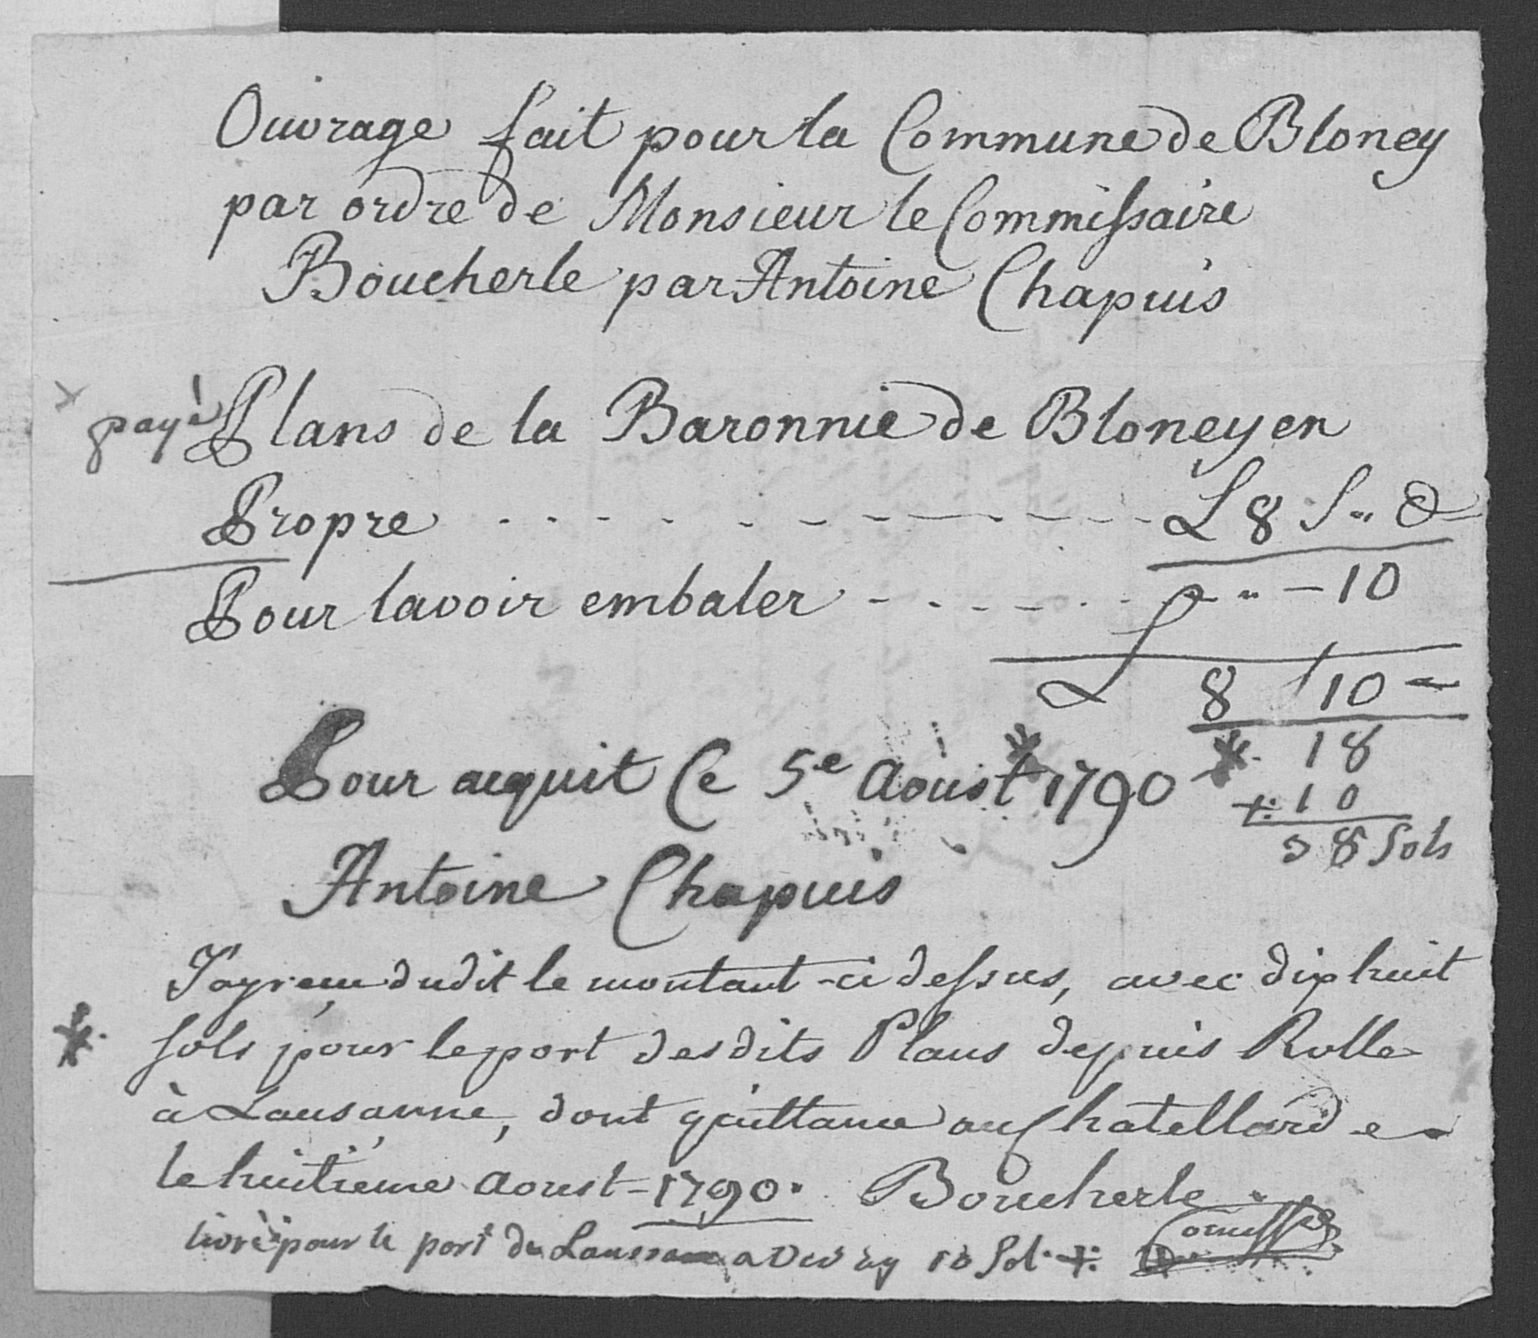 Ouvrage fait pour la Commune de Bloney
par ordre de Monsieur le Commissaire
Boucherle par Antoine Chapuis
payé Plans de la Baronnie de Bloney en
Propre L 8 S
Pour lavoir embaler 10
L 8 S 10
18
Pour acquit Ce 5e Aoust 1790
+: 10
38 Sols
Antoine Chapuis
J'ay reçu dudit le montant ci dessus, avec dix huit
sols pour le port desdits Plans depuis Rolle
à Lausanne, dont quittance au Chatellard
le huitième aoust 1790. Boucherle
livré pour le port de a 10 Sol +: